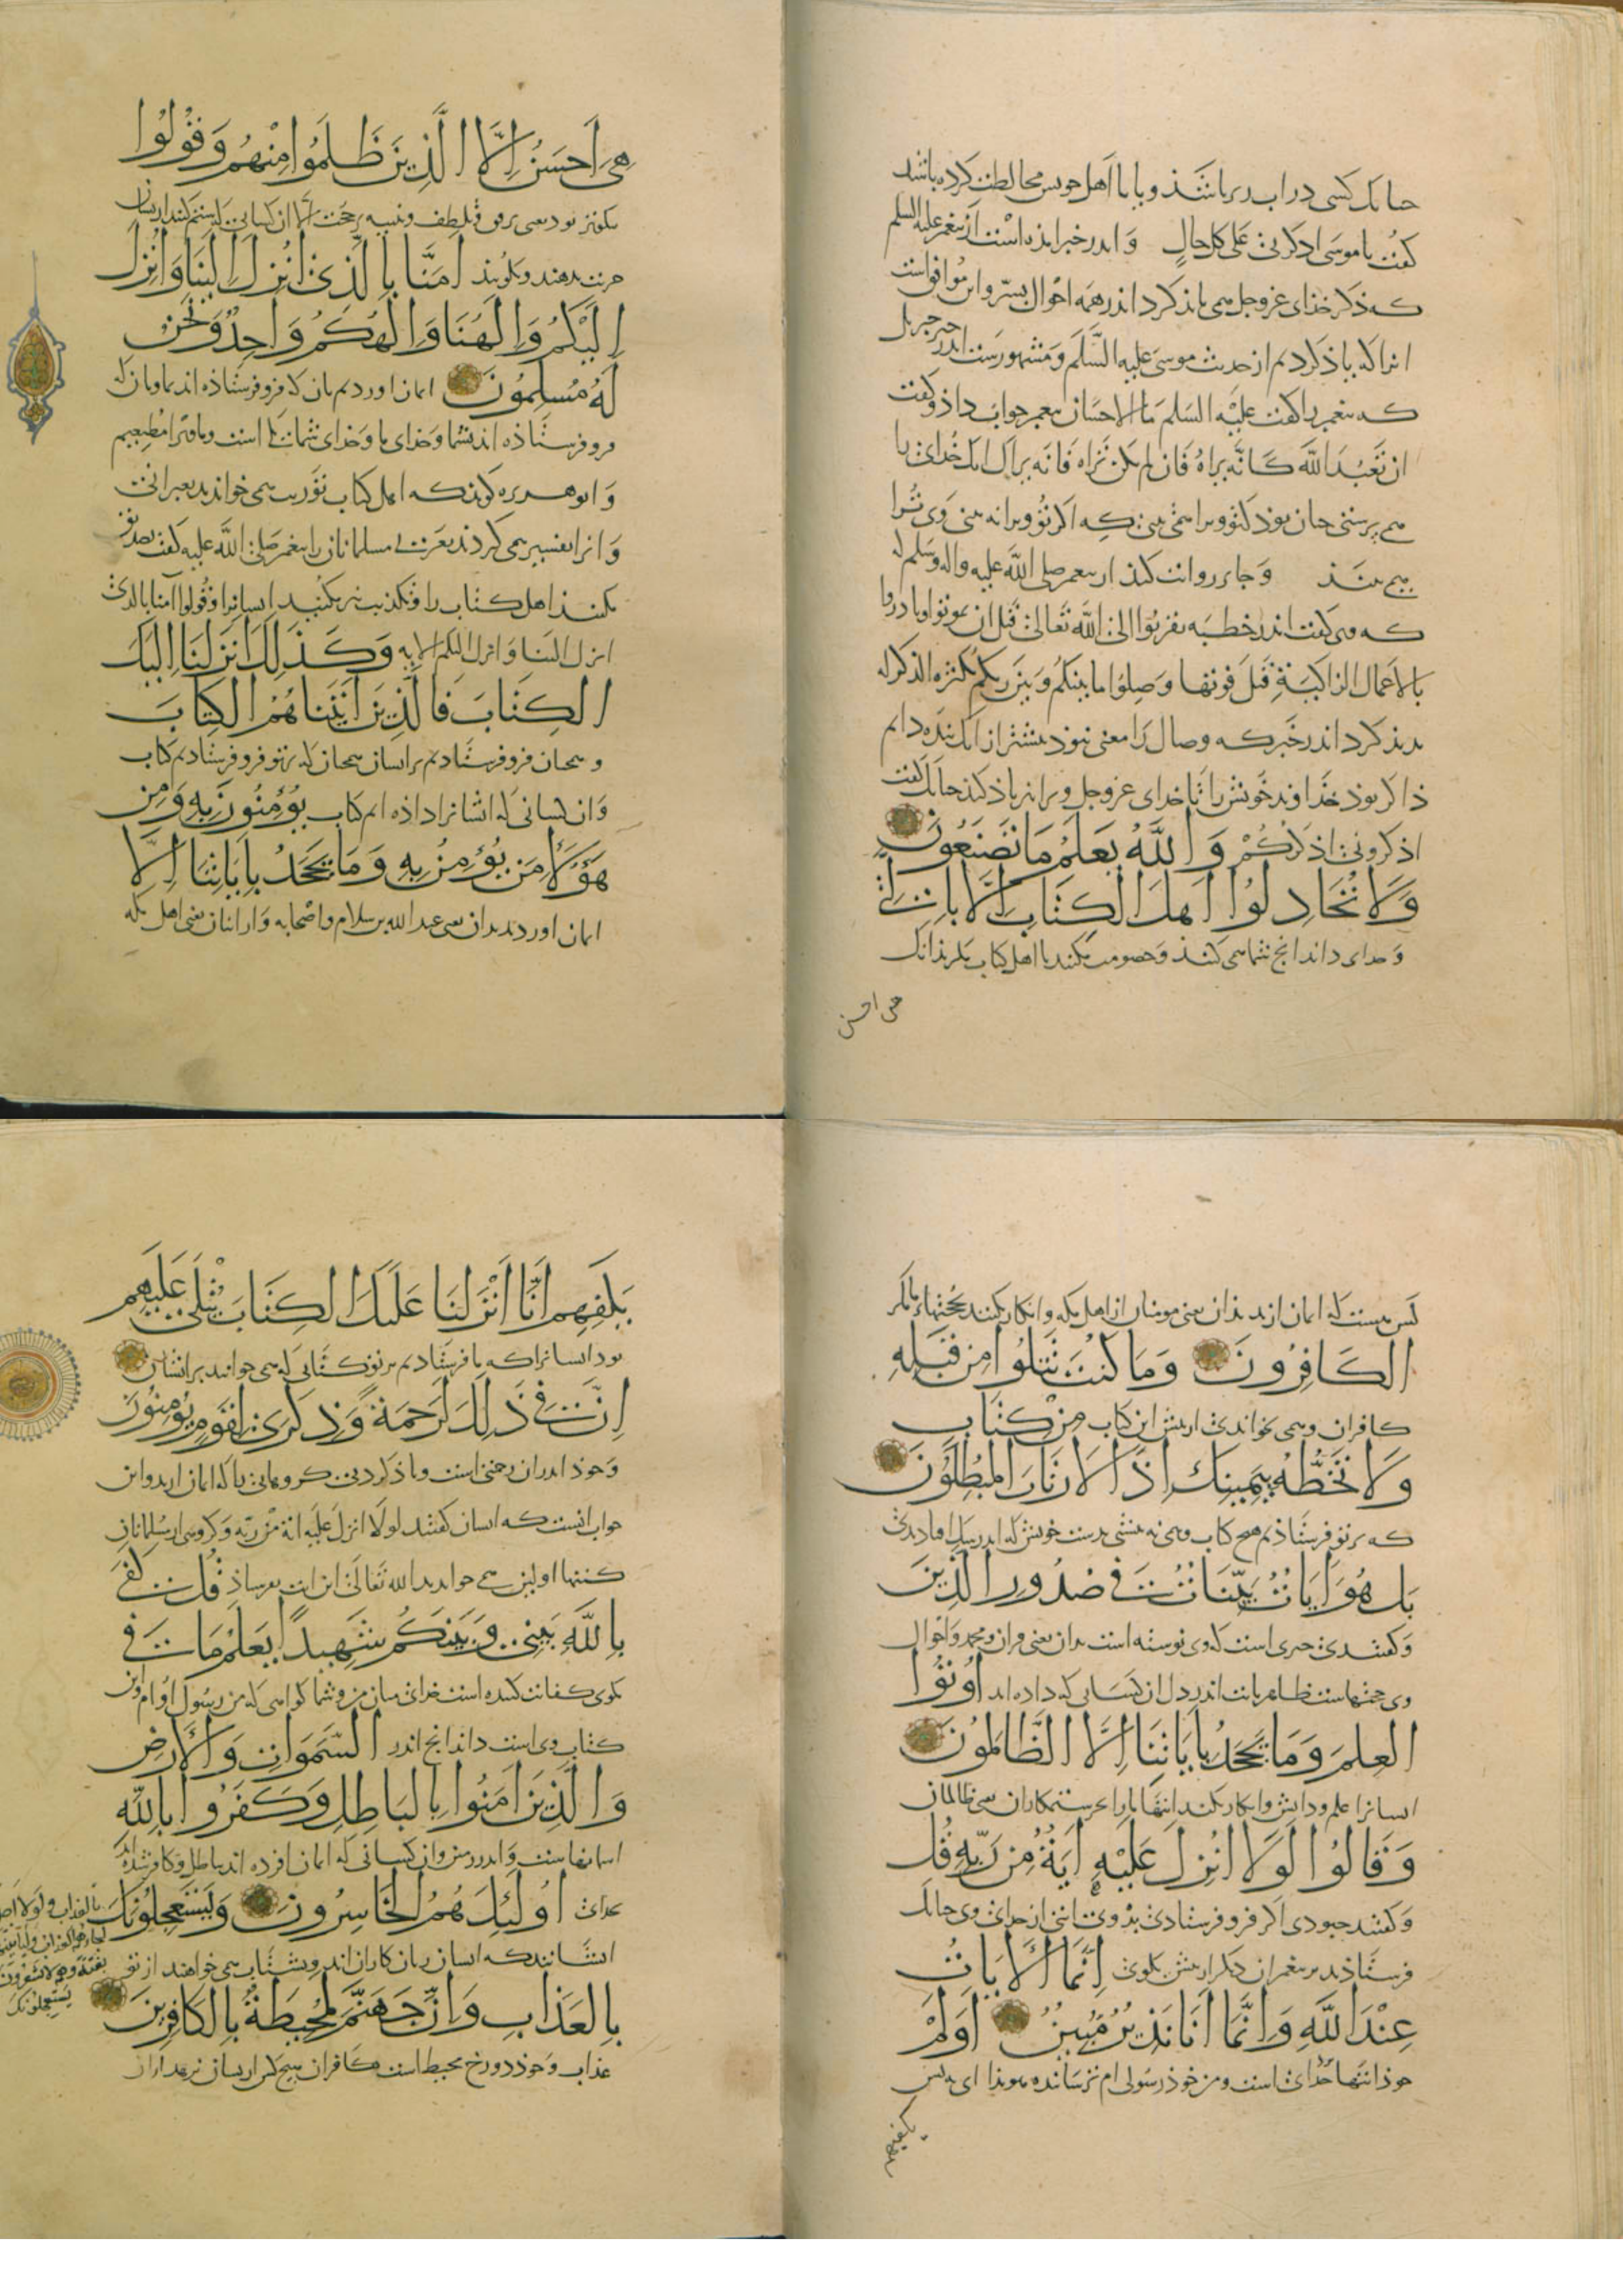 حنانک کسی در اب در باشذ و با با اهل خویس مخالطت کرده باشد
کفت یا موسی اذکرنی علی کل حال و اندر خبر امذه است از پیغمبر علیه السلم
که ذکر خذای عزوجل می یاذ کرد اندر همه احوال بسر و این موافق است
انرا که یاذ کردیم از حدیث موسی علیه السلم و مشهورست اندر خبر جبریل
که پیغمبر را کفت علیه السلم ما الاحسان پیغمبر جواب داذ و کفت
ان تعبد الله کانه یراه فان لم یکن تراه فانه یراک انک خدای را
می پرستی جنان بوذ کی تو ویرا همی بینی که اکر تو ویرا نه بینی وی ترا
می بینذ و جابر روایت کنذ از پیغمبر صلی الله علیه واله وسلم که
که وی کفت اندر خطبه تقربوا الی الله تعالی قبل ان تموتوا وبادروا
بالاعمال الزاکیة قبل فوتها وصلوا ما بینکم وبین ربکم بکثرة الذکر له
بدید کرد اندر خبر که وصال را معنی نبوذ بیشتر از انک بنده دایم
ذاکر بوذ خذاوند خویش را تا خدای عزوجل ویرا نیز یاذ کنذ جنانک کفت
اذکرونی اذکرکم وَاللَّهُ يَعْلَمُ مَا تَصْنَعُونَ
وَلَا تُجَادِلُوا أَهْلَ الْكِتَابِ إِلَّا بِالَّتِي
و خدای داند انج شما می کنند و خصومت مکنید با اهل کتاب مکر بذانک
هی احسن
هِيَ أَحْسَنُ إِلَّا الَّذِينَ ظَلَمُوا مِنْهُمْ وَقُولُوا
نیکوتر بود یعنی برفق و بلطف و تنبیه بر حجت الا ان کسانی که ستم کنند از یشان
جزیت بدهند و بکویند آمَنَّا بِالَّذِي أُنْزِلَ إِلَيْنَا وَأُنْزِلَ
إِلَيْكُمْ وَإِلَهُنَا وَإِلَهُكُمْ وَاحِدٌ وَنَحْنُ
لَهُ مُسْلِمُونَ ایمان اوردیم بان که فرو فرستاذه اند بما و بان که
فرو فرستاذه اند بشما و خدای ما و خدای شما یکی است و ما مر او را مطیعیم
و ابو هریره کوید که اهل کتاب توریت همی خواندند بعبرانی
و انرا تفسیر همی کردند بعربی مسلمانان را پیغمبر صلی الله علیه کفت تصدیق
مکنید اهل کتاب را و تکذیب نیز مکنید ایشانرا و قولوا آمنا بالذی
انزل الینا و انزل الیکم الایه وَكَذَلِكَ أَنْزَلْنَا إِلَيْكَ
الْكِتَابَ فَالَّذِينَ آتَيْنَاهُمُ الْكِتَابَ
و همجنان فرو فرستادیم بر ایشان همجنان که بر تو فرو فرستادیم کتاب
و ان کسانی که ایشانرا داذه ایم کتاب يُؤْمِنُونَ بِهِ وَمِنْ
هَؤُلَاءِ مَنْ يُؤْمِنُ بِهِ وَمَا يَجْحَدُ بِآيَاتِنَا إِلَّا
ایمان اوردند بدان یعنی عبد الله بن سلام و اصحابه و از اینان یعنی اهل مکه
کس هست که ایمان ارند بذان یعنی مومنان از اهل مکه و انکار نکنند بحجتهاء ما مکر
الْكَافِرُونَ وَمَا كُنْتَ تَتْلُوا مِنْ قَبْلِهِ
کافران و همی نخواندی از پیش این کتاب مِنْ كِتَابٍ
وَلَا تَخُطُّهُ بِيَمِينِكَ إِذًا لَارْتَابَ الْمُبْطِلُونَ
که بر تو فرستاذیم هیج کتاب و همی نه نبشتی بدست خویش که اندر شک افتادندی
بَلْ هُوَ آيَاتٌ بَيِّنَاتٌ فِي صُدُورِ الَّذِينَ
و کفتندی جیزی است که وی نوشته است بدان یعنی قران و محمد و احوال
وی حجتهاست ظاهر بابت اندر دل ان کسانی که داده اند أُوتُوا
الْعِلْمَ وَمَا يَجْحَدُ بِآيَاتِنَا إِلَّا الظَّالِمُونَ
ایشانرا علم و دانش و انکار نکند ایتهاء ما را مکر ستمکاران یعنی ظالمان
وَقَالُوا لَوْلَا أُنْزِلَ عَلَيْهِ آيَةٌ مِنْ رَبِّهِ قُلْ
و کفتند جهودی اکر فرو فرستادی بذوی ایتی از خدای وی جنانک
فرستاذند بر پیغمبران دیکر از پیش بکوی إِنَّمَا الْآيَاتُ
عِنْدَ اللَّهِ وَإِنَّمَا أَنَا نَذِيرٌ مُبِينٌ أَوَلَمْ
خوذ ایتها خدای است و من خوذ رسولی ام ترساننده هویذا ای نه بس
یکفهم
يَكْفِهِمْ أَنَّا أَنْزَلْنَا عَلَيْكَ الْكِتَابَ يُتْلَى عَلَيْهِمْ
بود ایشانرا که ما فرستادیم بر تو کتابی که همی خوانند بر ایشان
إِنَّ فِي ذَلِكَ لَرَحْمَةً وَذِكْرَى لِقَوْمٍ يُؤْمِنُونَ
و خوذ اندران رحمتی است و یاذ کردنی کروهانی را که ایمان ارند و این
جواب انست که ایشان کفتند لولا انزل علیه آیة من ربه و کروهی از مسلمانان
کتبها اولین همی خواندند الله تعالی این ایت بفرستاذ قُلْ كَفَى
بِاللَّهِ بَيْنِي وَبَيْنَكُمْ شَهِيدًا يَعْلَمُ مَا فِي
بکوی کفایت کننده است خدای میان من و شما کواهی که من رسول او ام و این
کتاب وی است داند انج اندر السَّمَوَاتِ وَالْأَرْضِ
وَالَّذِينَ آمَنُوا بِالْبَاطِلِ وَكَفَرُوا بِاللَّهِ
اسمانهاست و اندر زمین و ان کسانی که ایمان اورده اند بباطل و کافر شده اند
بخدای أُولَئِكَ هُمُ الْخَاسِرُونَ وَيَسْتَعْجِلُونَكَ
بالعذاب ولولا اجل
لجاءهم العذاب ولیاتینهم
بغتة وهم لا یشعرون
یستعجلونک
ایشانند که ایشان زیان کاران اند و بشتاب همی خواهند از تو
بِالْعَذَابِ وَإِنَّ جَهَنَّمَ لَمُحِيطَةٌ بِالْكَافِرِينَ
عذاب و خوذ دوزخ محیط است بکافران هیج کس از یشان نرهد از ان